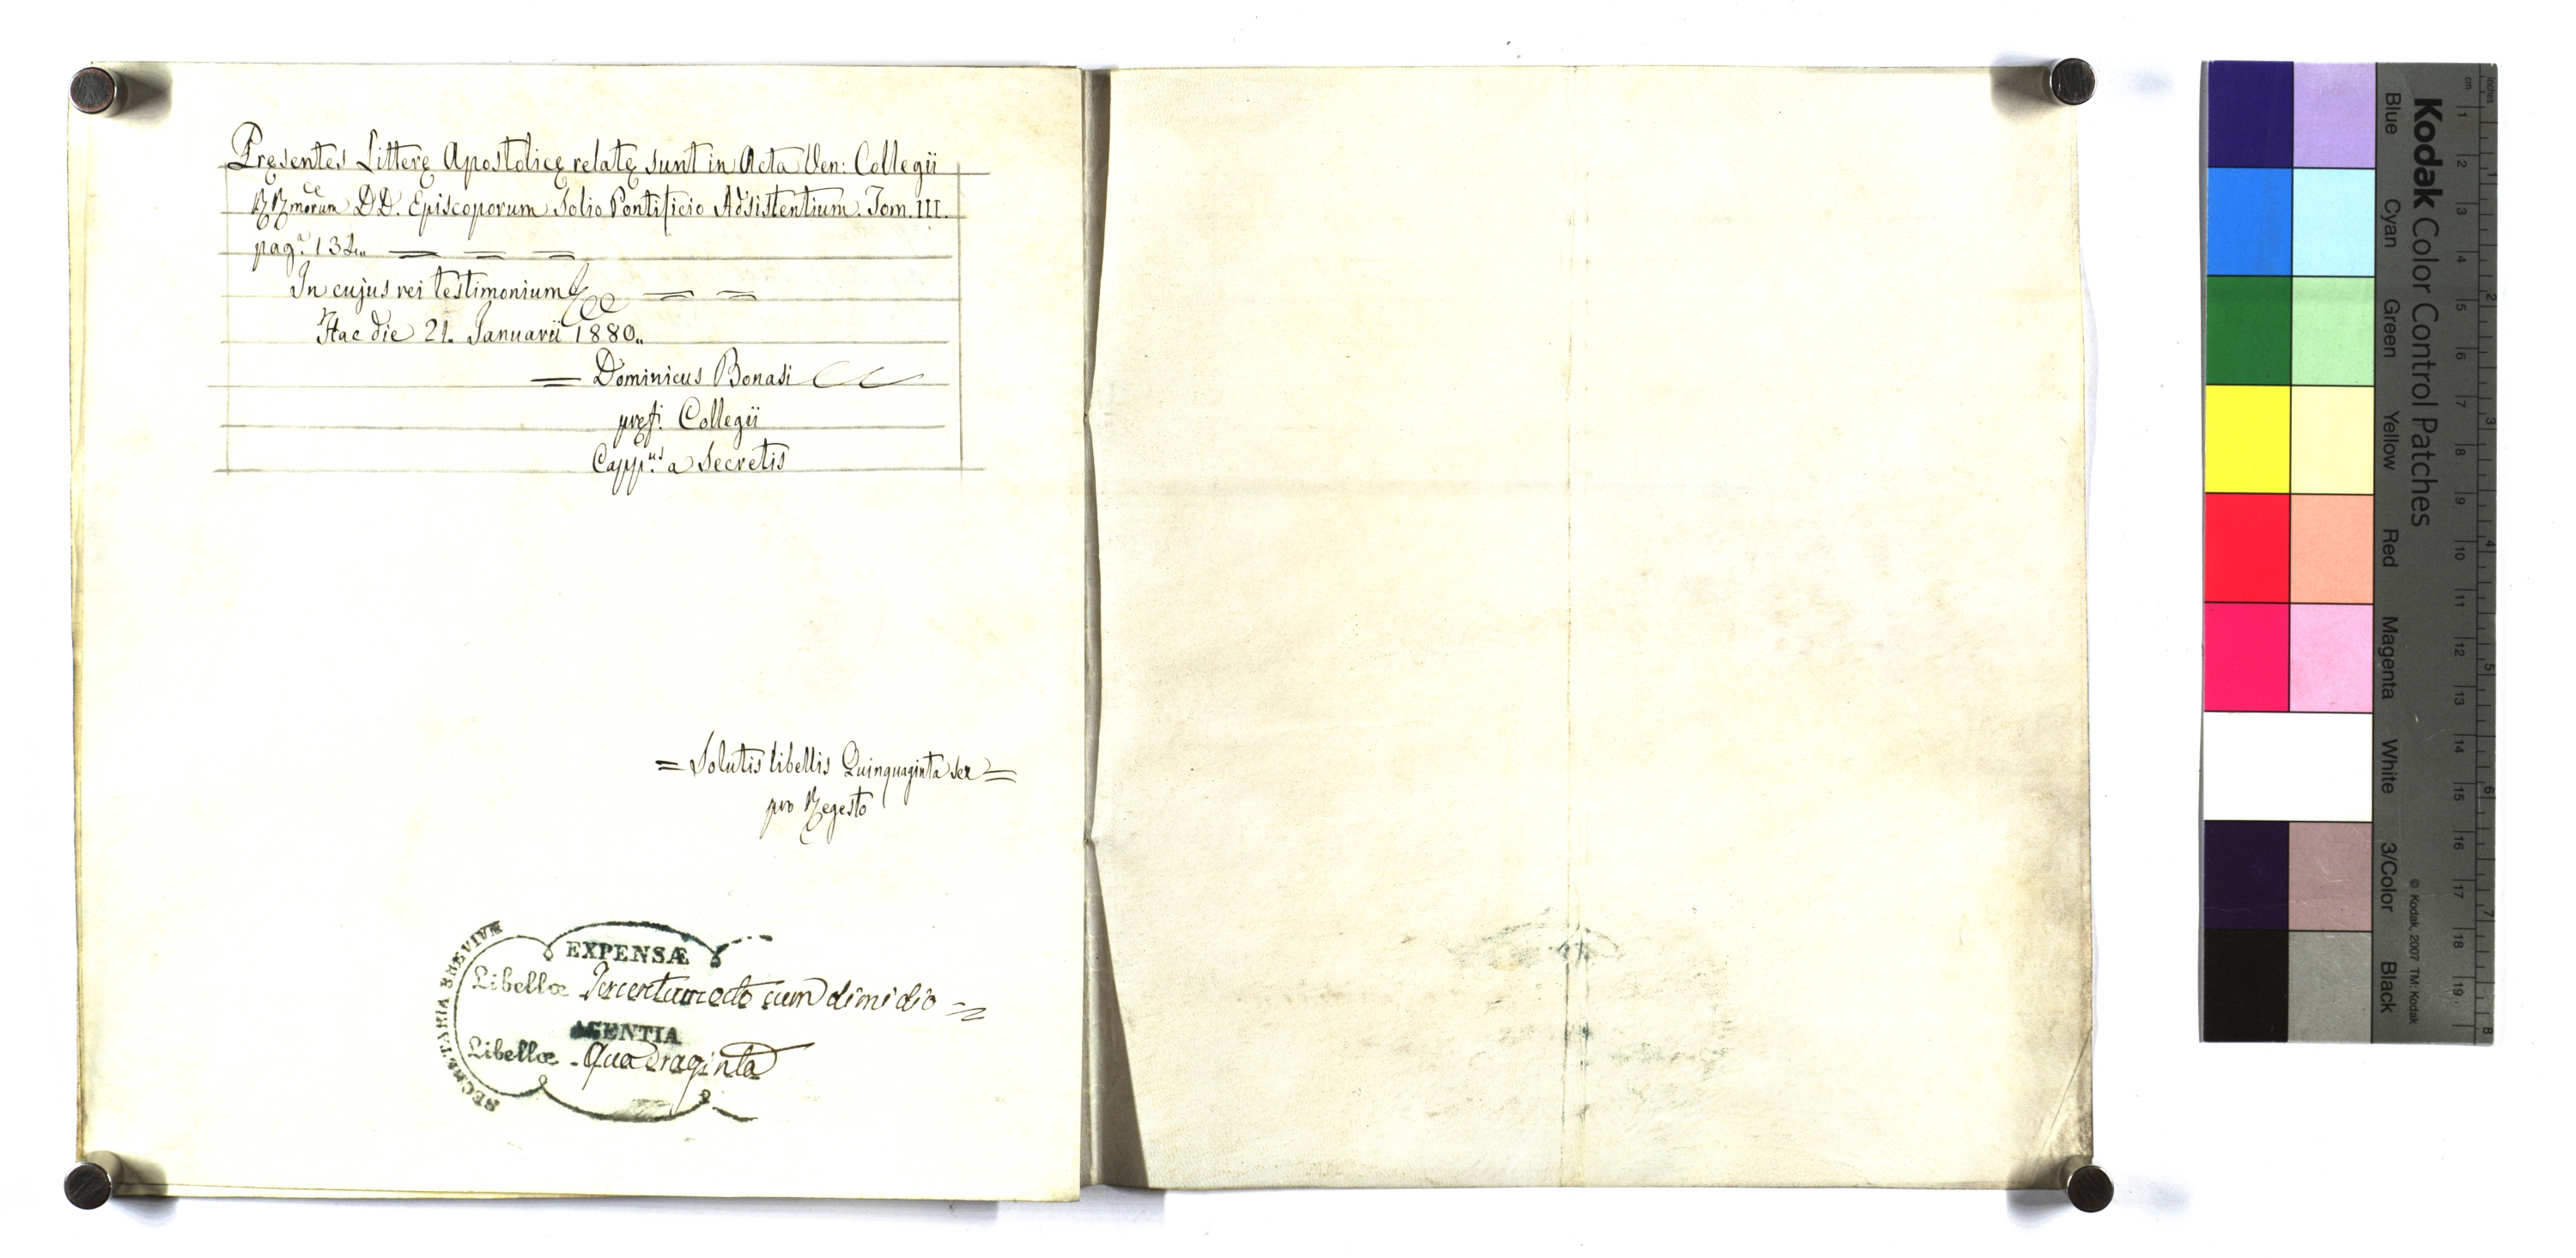 Pręsentes Litterę Apostolicę relatę sunt in Acta Ven: Collegii
RRmorum DD. Episcoporum Solio Pontificio Adsistentium. Tom. III.
pag.ª 132..
In cujus rei testimonium
Hac die 21. Januarii 1880..
Dominicus Bonasi
pręfi. Collegii
Capp.us a Secretis
= Solutis libellis Quinquaginta sex =
pro Regesto
SECRETARIA BREVIVM
EXPENSÆ
Libellæ Tercentumocto cum dimidio =
AGENTIA
Libellæ - Quadraginta
Kodak Color Control Patches
Blue Cyan Green Yellow Red Magenta White 3/Color Black
© Kodak, 2007 TM: Kodak
inches 1 2 3 4 5 6 7 8
cm 1 2 3 4 5 6 7 8 9 10 11 12 13 14 15 16 17 18 19